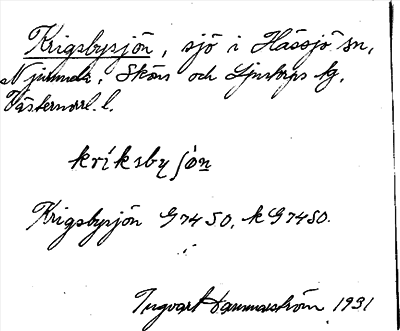 Krigsbysjön, sjö i Hässjö sn,
Njurunda, Sköns och Ljustorps tg,
Västernorrl. l.
kriksbysjön
Krigsbysjön G 74 SO, k G 74 SO.
Ingvart Hammarström 1931